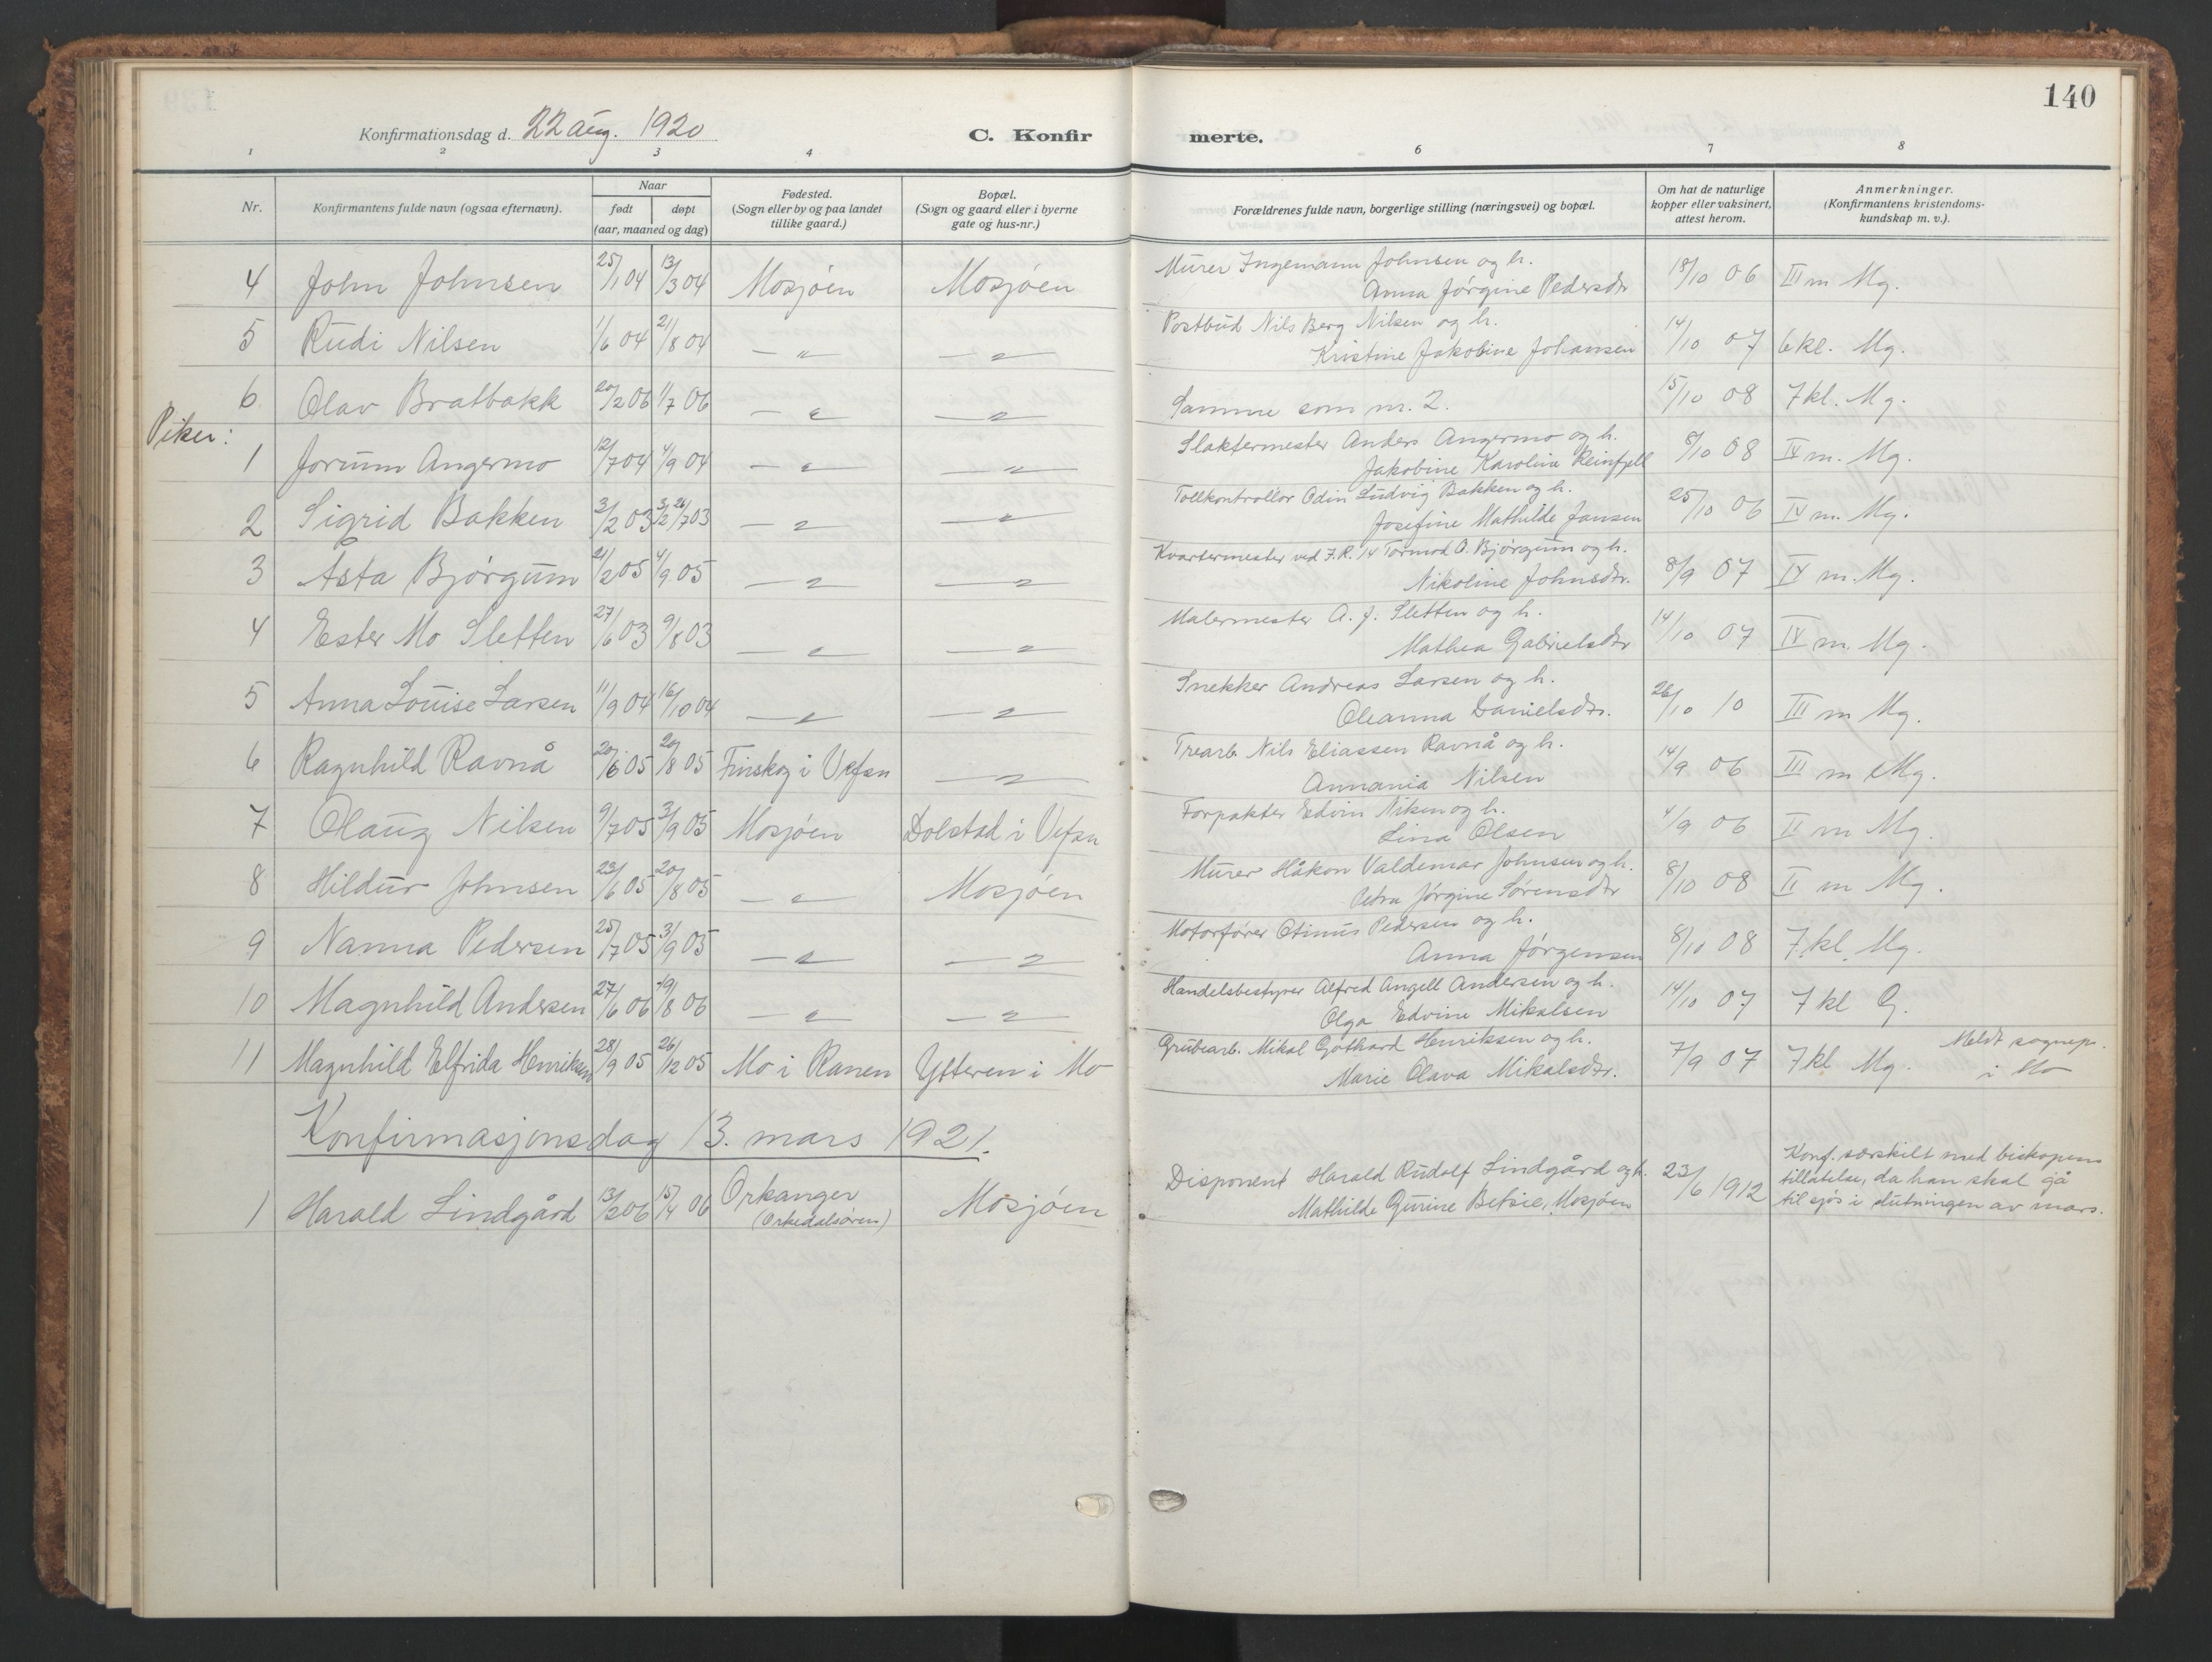 140
Konfirmationsdag d. 22 aug. 1920
C. Konfirmerte.
1 2 3 4 6 7 8
Nr. Konfirmantens fulde navn (ogsaa efternavn). Naar født døpt (aar, maaned og dag) Fødested. (Sogn eller by og paa landet tillike gaard.) Bopæl. (Sogn og gaard eller i byerne gate og hus-nr.) Forældrenes fulde navn, borgerlige stilling (næringsvei) og bopæl. Om hat de naturlige kopper eller vaksinert, attest herom. Anmerkninger. (Konfirmantens kristendomskundskap m. v.).
4 John Johnsen 25/1 04 13/3 04 Mosjøen Mosjøen Murer Ingemann Johnsen og h. Anna Jørgine Pedersdtr 18/10 06 III m Mg.
5 Rudi Nilsen 1/6 04 21/8 04 — " — — " — Postbud Nils Berg Nilsen og h. Kristine Jakobine Johansen 14/10 07 6 kl. Mg.
6 Olav Bratbakk 20/2 06 1/7 06 — " — — " — Samme som nr. 2. 15/10 08 7 kl. Mg.
Piker:
1 Jorunn Angermo 12/7 04 4/9 04 — " — — " — Slaktermester Anders Angermo og h. Jakobine Karoline Reinfjell 8/10 08 IV m. Mg.
2 Sigrid Bakken 3/2 03 3/2 26/7 03 — " — — " — Tollkontrollør Odin Ludvig Bakken og h. Josefine Mathilde Jansen 25/10 06 IV m. Mg.
3 Asta Bjørgum 21/2 05 4/9 05 — " — — " — Kvartermester ved I.R. 14 Tormod O. Bjørgum og h. Nikoline Johnsdtr. 8/9 07 IV m. Mg.
4 Ester Mo Sletten 27/6 03 9/8 03 — " — — " — Malermester A. J. Sletten og h. Mathea Gabrielsdtr 14/10 07 IV m. Mg.
5 Anna Louise Larsen 11/9 04 16/10 04 — " — — " — Snekker Andreas Larsen og h. Oleanna Danielsdtr. 26/10 10 III m Mg.
6 Ragnhild Ravnå 20/6 05 20/8 05 Finskog i Vefsn — " — Trearb. Nils Eliassen Ravnå og h. Annania Nilsen 14/9 06 III m Mg.
7 Olaug Nilsen 9/7 05 3/9 05 Mosjøen Dolstad i Vefsn Forpakter Edvin Nilsen og h. Lina Olsen 4/9 06 II m Mg.
8 Hildur Johnsen 23/6 05 20/8 05 — " — Mosjøen Murer Håkon Valdemar Johnsen og h. Petra Jørgine Sørensdtr 8/10 08 II m Mg.
9 Nanna Pedersen 25/7 05 3/9 05 — " — — " — Motorfører Otinus Pedersen og h. Anna Jørgensen 8/10 08 7 kl. Mg.
10 Magnhild Andersen 27/6 06 19/8 06 — " — — " — Handelsbestyrer Alfred Angell Andersen og h. Olga Edvine Mikalsen 14/10 07 7 kl G.
11 Magnhild Elfrida Henriksen 28/9 05 26/12 05 Mo i Ranen Ytteren i Mo Grubearb. Mikal Gothard Henriksen og h. Marie Olava Mikalsdtr. 7/9 07 7 kl Mg. Meldt sognepr. i Mo
Konfirmasjonsdag 13. mars 1921.
1 Harald Lindgård 13/2 06 15/4 06 Orkanger (Orkedalsøren) Mosjøen Disponent Harald Rudolf Lindgård og h. Mathilde Gurine Betsie, Mosjøen 23/6 1912 Konf. særskilt med biskopens tillatelse, da han skal gå til sjøs i slutningen av mars.